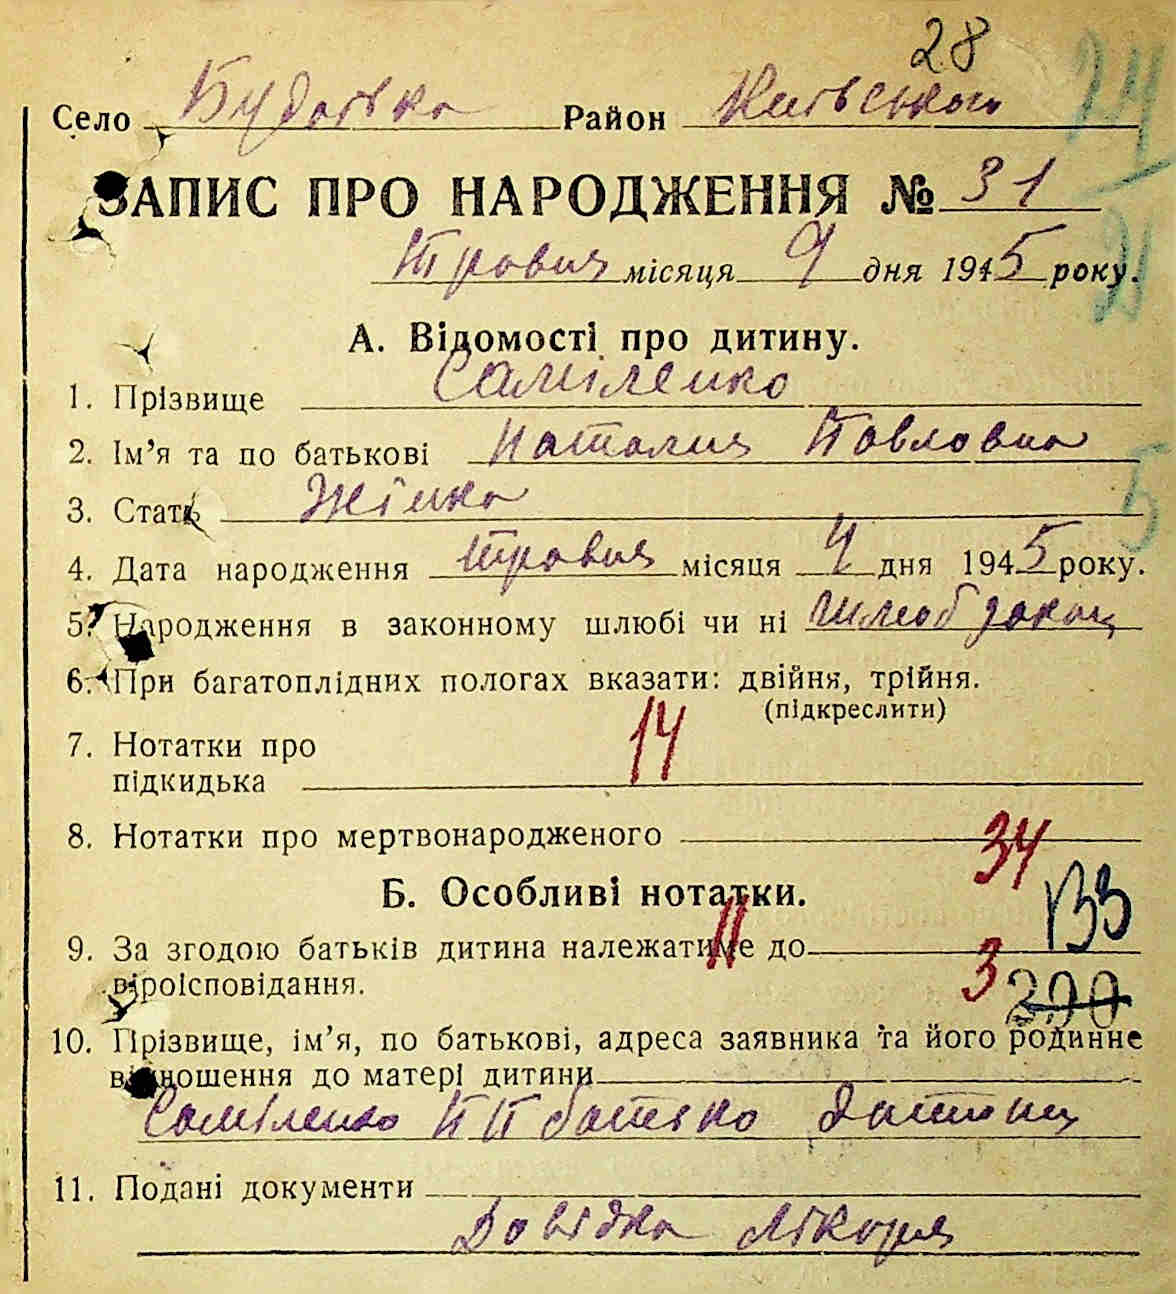 28
Село Будаївка Район Київський
ЗАПИС ПРО НАРОДЖЕННЯ № 31
травня місяця 9 дня 1945 року.
А. Відомості про дитину.
1. Прізвище Самійленко
2. Ім’я та по батькові Наталия Павловна
3. Стать Жінка
4. Дата народження травня місяця 4 дня 1945 року.
5. Народження в законному шлюбі чи ні шлюб
6. При багатоплідних пологах вказати: двійня, трійня.
(підкреслити)
7. Нотатки про
підкидька
14
8. Нотатки про мертвонародженого
34
Б. Особливі нотатки.
133
9. За згодою батьків дитина належатиме до
11
віроісповідання.
3 200
10. Прізвище, ім’я, по батькові, адреса заявника та його родинне
відношення до матері дитини
Самійленко П П батько дитини
11. Подані документи
Довідка лікаря